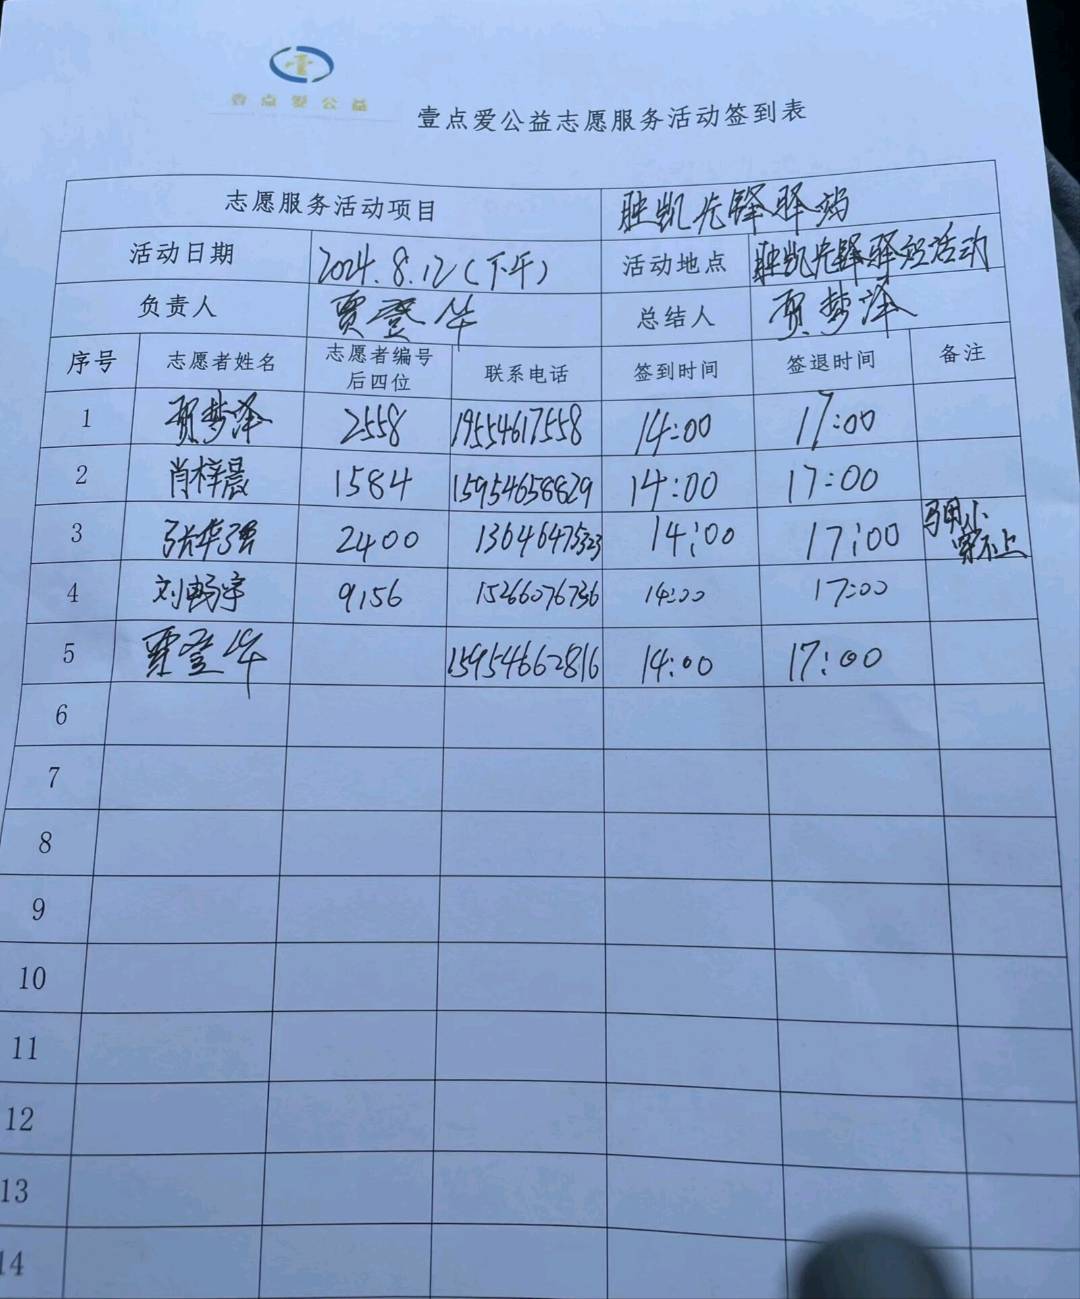 壹点爱公益
壹点爱公益志愿服务活动签到表
志愿服务活动项目 胜凯先锋驿站
活动日期 2024.8.12(下午) 活动地点 胜凯先锋驿站活动
负责人 贾登华 总结人 贾梦泽
序号 志愿者姓名 志愿者编号后四位 联系电话 签到时间 签退时间 备注
1 贾梦泽 2558 19554617558 14:00 17:00
2 肖梓晨 1584 15954658829 14:00 17:00
3 张华强 2400 13646475323 14:00 17:00 小穿不上
4 刘畅宇 9156 15266076736 14:00 17:00
5 贾登华 15954662816 14:00 17:00
6
7
8
9
10
11
12
13
14